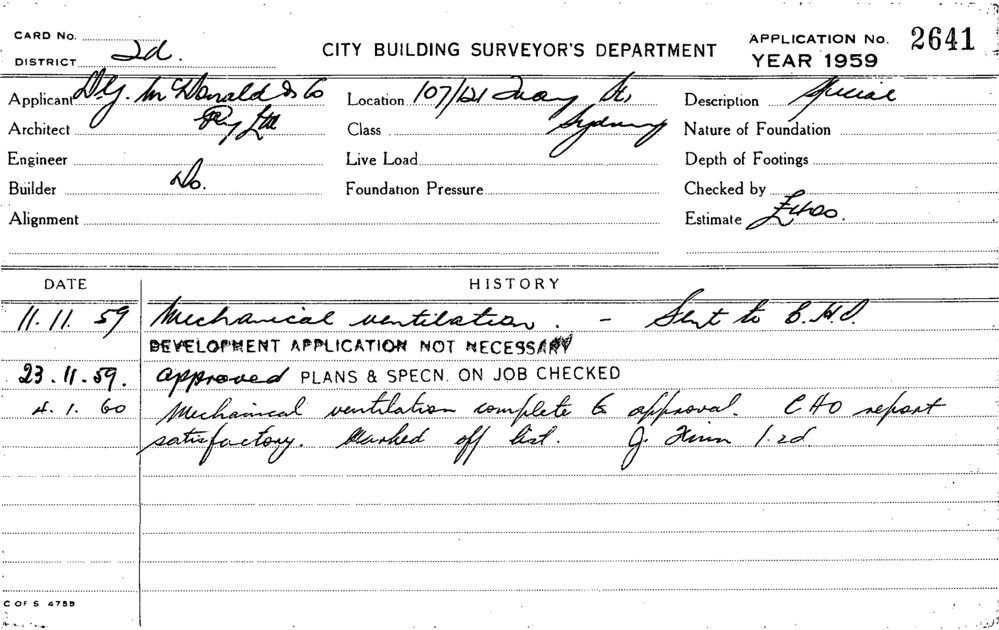 CARD No.
DISTRICT 2d.
CITY BUILDING SURVEYOR'S DEPARTMENT
APPLICATION No. 2641
YEAR 1959
Applicant D.G. McDonald & Co
Pty Ltd
Location 107/121 Quay St,
Sydney
Description Special
Architect
Class
Nature of Foundation
Engineer
Live Load
Depth of Footings
Builder Do.
Foundation Pressure
Checked by
Alignment
Estimate
DATE HISTORY
11.11.59 Mechanical ventilation. - Sent to C.H.O.
DEVELOPMENT APPLICATION NOT NECESSARY
23.11.59. approved PLANS & SPECN. ON JOB CHECKED
4.1.60 Mechanical ventilation complete to approval. CHO report
satisfactory. Marked off list. J. 1.2d
C OF S 475B